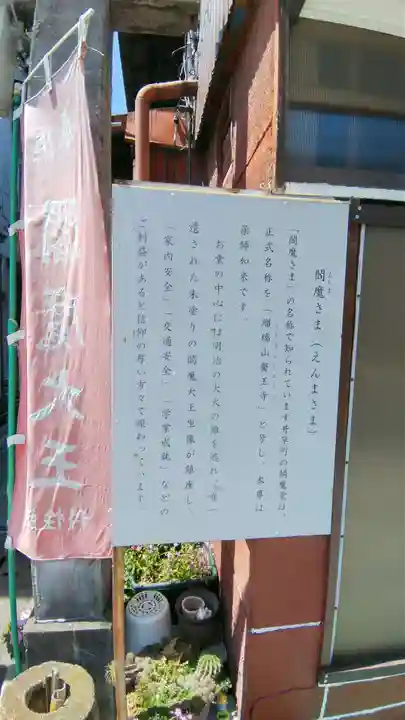 閻魔さま（えんまさま）
えんま
「閻魔さま」の名称で知られています井草町の閻魔堂は、
正式名称を「瑠璃山醫王寺」と号し、本尊は
薬師如来です。
お堂の中心には明治の大火の難を逃れ唯一
遺された朱塗りの閻魔大王坐像が鎮座し、
「家内安全」「交通安全」「学業成就」などの
ご利益があると信仰の厚い方々で賑わっています。
閻魔大王